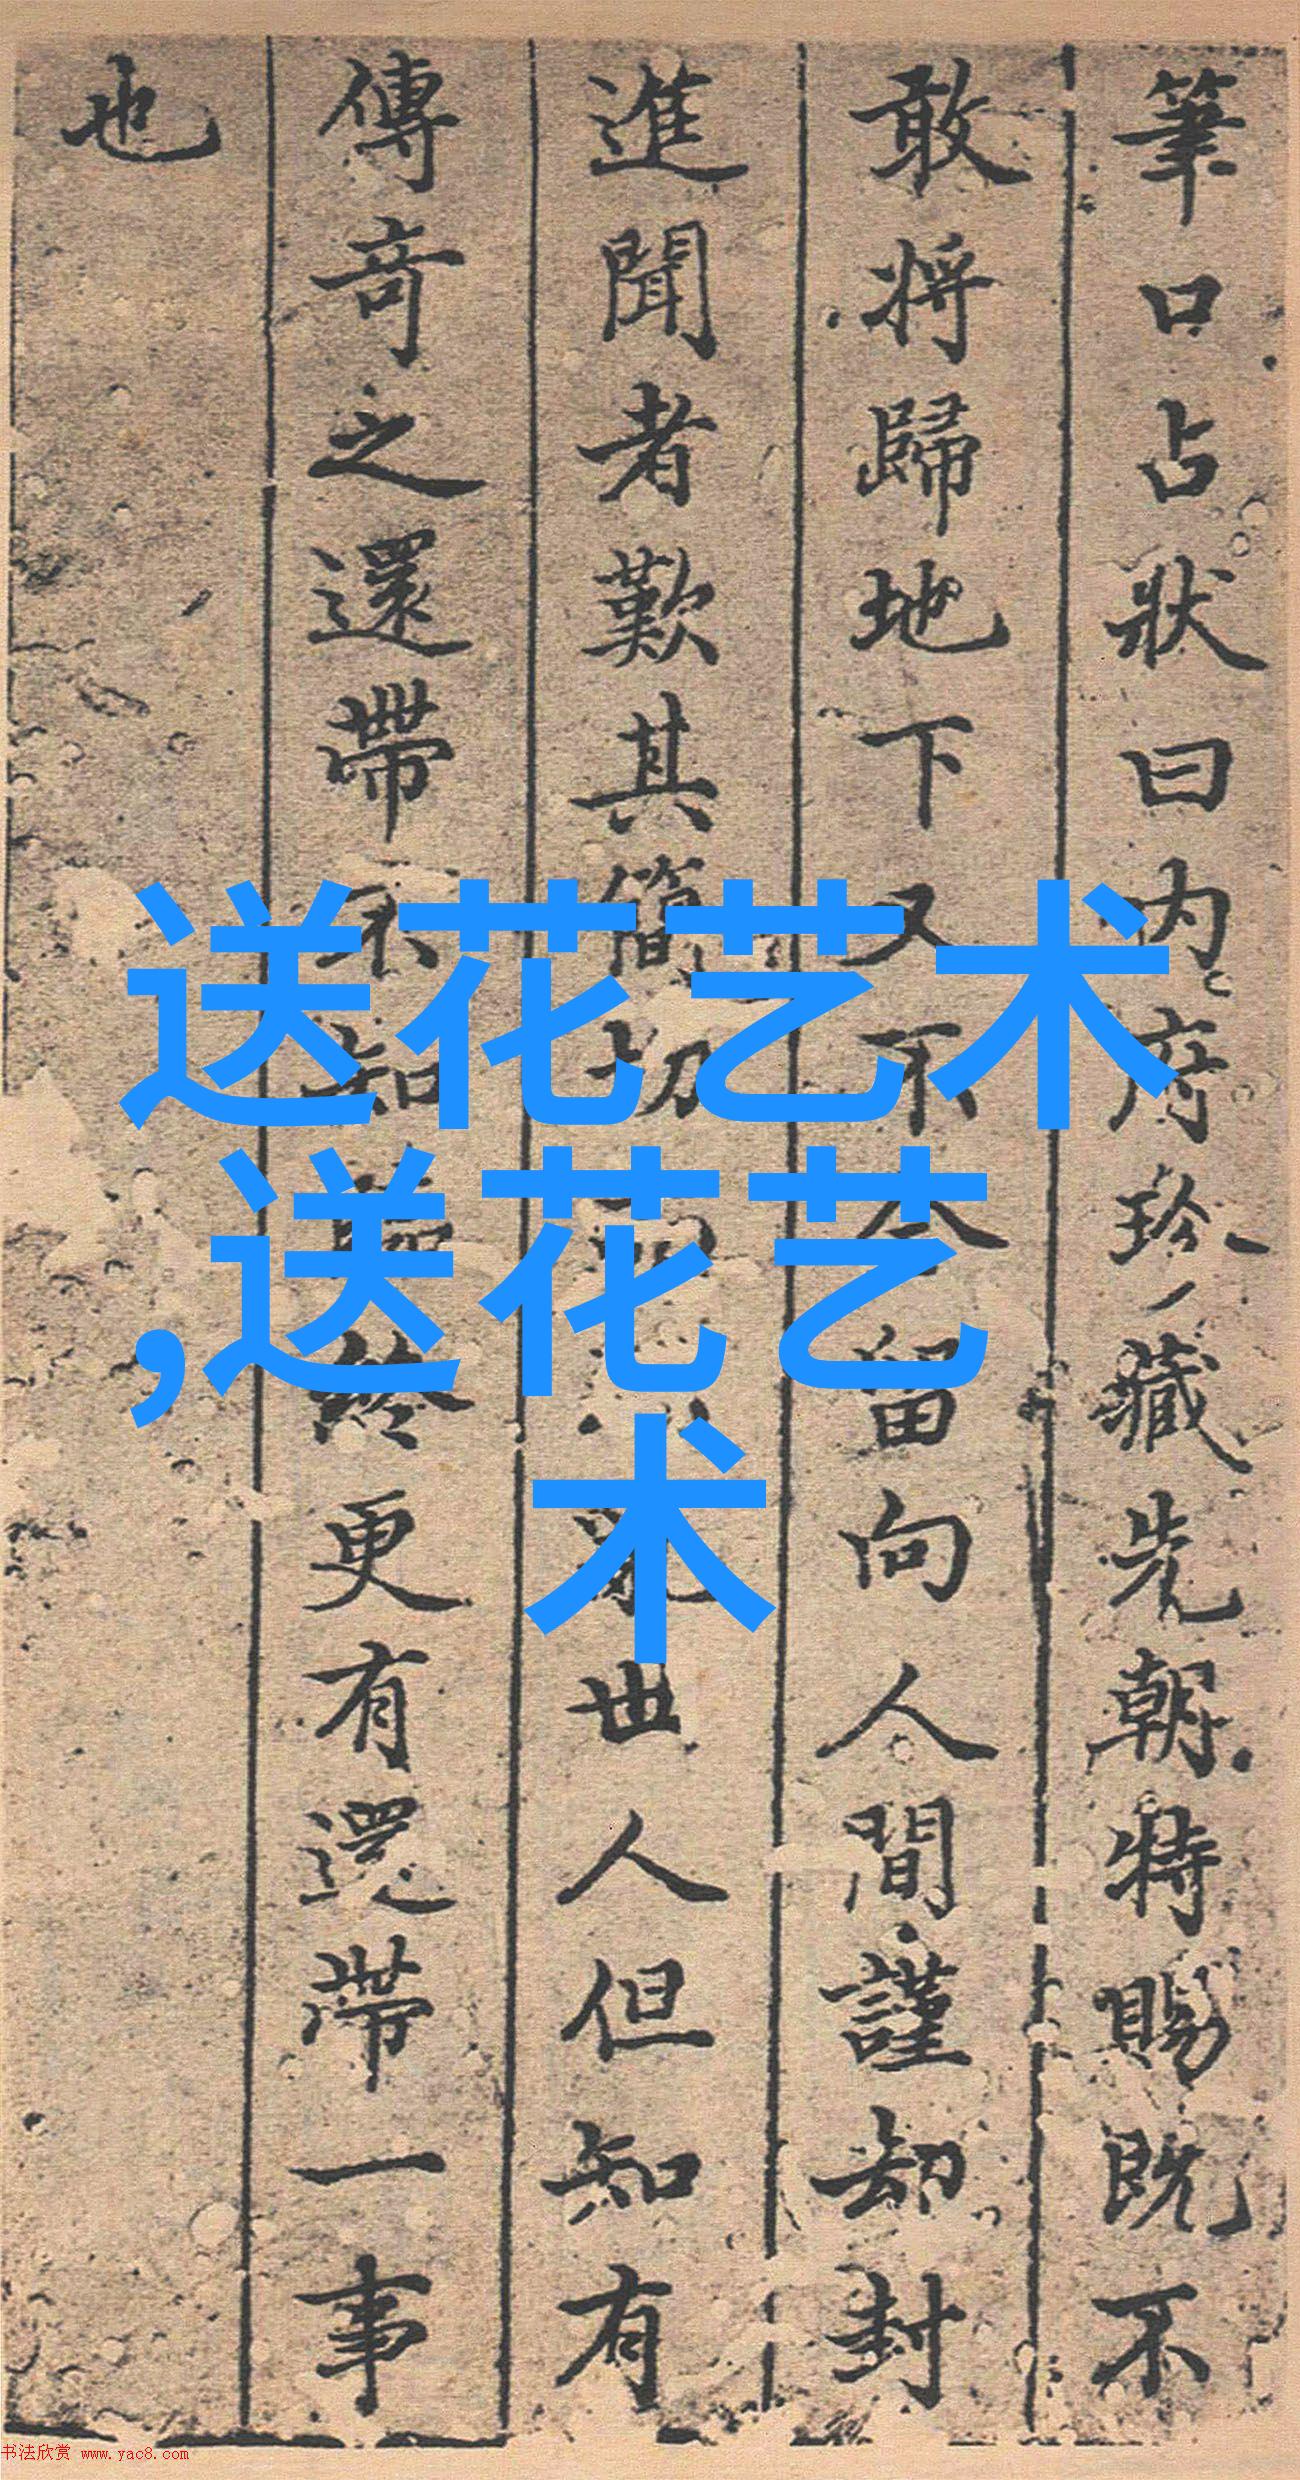 筆口占狀曰内府珍藏先朝特賜既不
敢將歸地下又不合留向人間謹却封
進聞者歎其簡切
世人但知有
傳奇之還帶不知
終更有還帶一事
也
送花艺术
,送花艺
术
书法欣赏 www.yac8.com